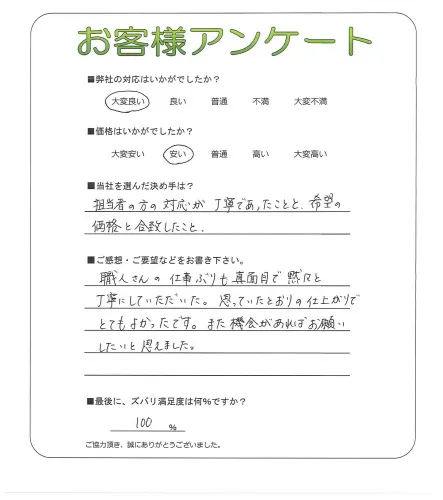 お客様アンケート
■弊社の対応はいかがでしたか?
大変良い 良い 普通 不満 大変不満
■価格はいかがでしたか?
大変安い 安い 普通 高い 大変高い
■当社を選んだ決め手は?
担当者の方の対応が丁寧であったことと、希望の
価格と合致したこと.
■ご感想・ご要望などをお書き下さい。
職人さんの仕事ぶりも真面目で黙々と
丁寧にしていただいた。思っていたとおりの仕上がりで
とてもよかったです。また機会があればお願い
したいと思えました。
■最後に、ズバリ満足度は何%ですか?
100 %
ご協力頂き、誠にありがとうございました。